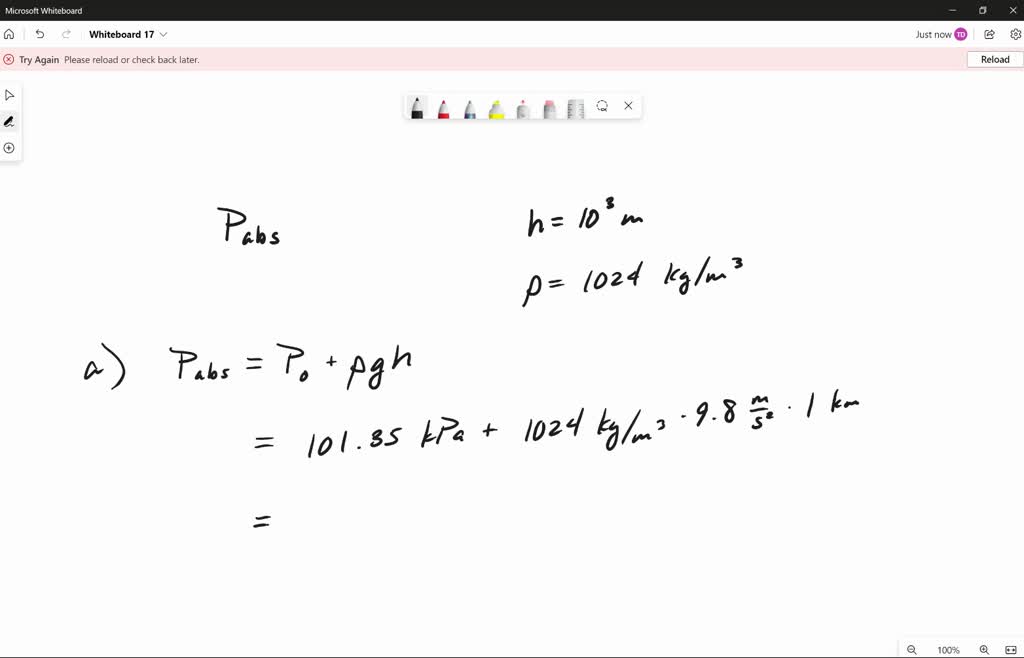 Microsoft Whiteboard
Whiteboard 17
Just now TD
Try Again Please reload or check back later.
Reload
P_abs
h = 10³ m
ρ = 1024 kg/m³
a) P_abs = P₀ + ρgh
= 101.35 kPa + 1024 kg/m³ · 9.8 m/s² · 1 km
=
100%